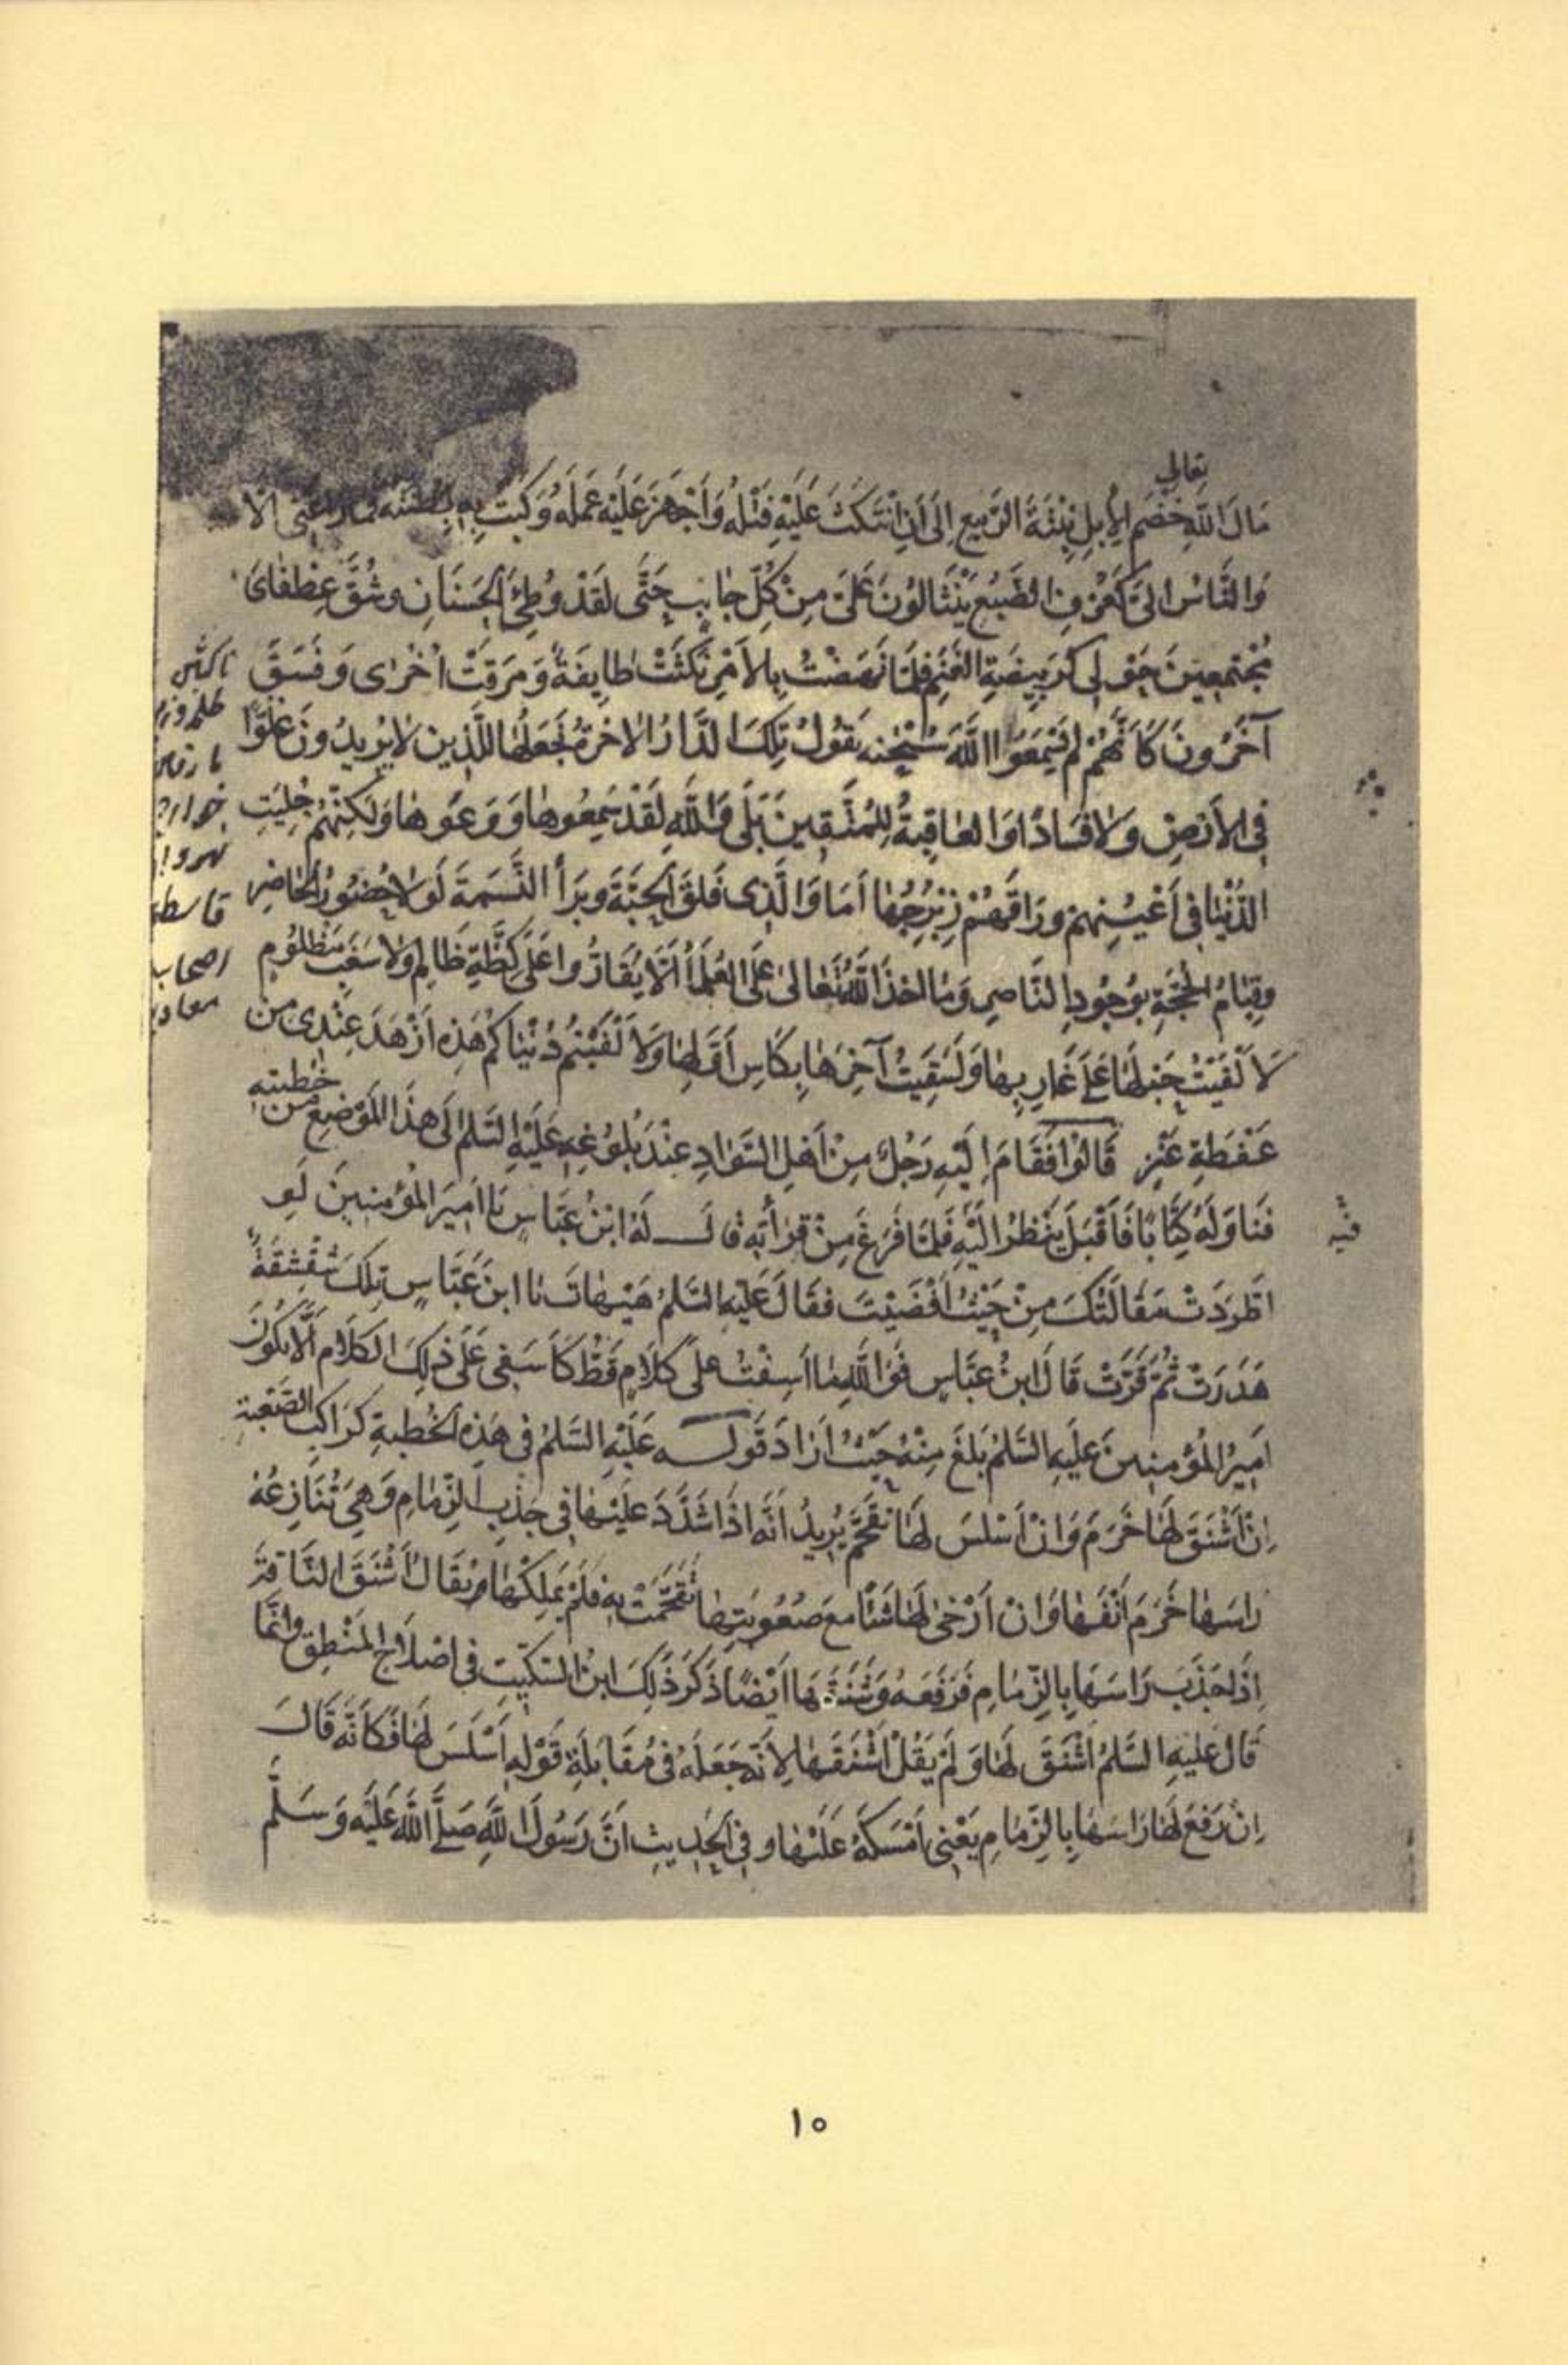 تعالى
مَالَ اللَّهِ خَضْمَ الْإِبِلِ نِبْتَةَ الرَّبِيعِ إِلَى أَنِ انْتَكَثَ عَلَيْهِ فَتْلُهُ وَأَجْهَزَ عَلَيْهِ عَمَلُهُ وَكَبَتْ بِهِ بِطْنَتُهُ فما راعنى الّا
وَالنَّاسُ الىَّ كَعُرْفِ الضَّبُعِ يَنْثَالُونَ عَلَىَّ مِنْ كُلِّ جانِبٍ حَتَّى لَقَدْ وُطِئَ الْحَسَنَانِ وشُقَّ عِطْفَاىَ
مُجْتَمِعِينَ حَوْلِى كَرَبِيضَةِ الْغَنَمِ فَلَمّا نَهَضْتُ بِالْأَمْرِ نَكَثَتْ طَايِفَةٌ وَمَرَقَتْ اُخْرٰى وَفَسَقَ
آخَرُونَ كَاَنَّهُمْ لَمْ يَسْمَعُوا اللَّهَ سُبْحٰنه يَقُولُ تِلْكَ الدَّارُ الاخرةُ نَجْعَلُهَا لِلَّذِين لَا يُرِيدُونَ عُلُوًّا
فِى الْأَرْضِ وَلَا فَسَادًا وَالْعَاقِبَةُ لِلْمُتَّقِينَ بَلَى وَاللَّهِ لَقَدْ سَمِعُوهَا وَوَعَوْهَا وَلَكِنَّهُمْ حَلِيَتِ
الدُّنْيَا فِى أَعْيُنِهِمْ ورَاقَهُمْ زِبْرِجُهَا أَمَا وَالَّذِى فَلَقَ الْحَبَّةَ وبَرَأَ النَّسَمَةَ لَوْلَا حُضُورُ الْحَاضِرِ
وقِيَامُ الْحُجَّةِ بِوُجُودِ النَّاصِرِ وَمَا اخذَ اللَّهُ تَعَالى عَلَى الْعُلَمَاءِ أَلَّا يُقَارُّوا عَلَى كِظَّةِ ظَالِمٍ وَلَا سَغَبِ مَظْلُومٍ
لَاَلْقَيْتُ حَبْلَهَا عَلَى غَارِبِهَا وَلَسَقَيْتُ آخِرَهَا بِكَاسِ أَوَّلِهَا وَلَأَلْفَيْتُمْ دُنْيَاكُمْ هَذِهِ أَزْهَدَ عِنْدِى مِن
عَفْطَةِ عَنْزٍ قَالُوا فَقَامَ اِلَيْهِ رَجُلٌ مِنْ أَهْلِ السَّوَادِ عِنْدَ بُلُوغِهِ عَلَيْهِ السَّلم اِلَى هذَا الْمَوْضِعِ مِن خُطبته
فَنَاوَلَهُ كِتَابًا فَأَقْبَلَ يَنْظُرُ اِلَيْهِ فَلَمَّا فَرَغَ مِنْ قِرَأتِهِ قَالَ لَهُ ابْنُ عَبَّاسٍ يَا اَمِيرَ الْمُؤْمِنِينَ لَوِ
اطَّرَدَتْ مَقَالَتُكَ مِنْ حَيْثُ أَفْضَيْتَ فَقَالَ عَلَيْهِ السَّلمُ هَيْهَاتَ يَا ابْنَ عَبَّاسٍ تِلْكَ شِقْشِقَةٌ
هَدَرَتْ ثُمَّ قَرَّتْ قَالَ ابْنُ عَبَّاسٍ فَوَاللَّهِ مَا اَسِفْتُ عَلَى كَلَامٍ قَطُّ كَأَسَفِى عَلَى ذلِكَ الْكَلَامِ أَلَّا يَكُونَ
اَمِيرُ الْمُؤْمِنِينَ عَلَيهِ السَّلمُ بَلَغَ مِنْهُ حَيْثُ اَرَادَ قَولـه عَلَيْهِ السَّلمُ فى هَذِهِ الْخُطبةِ كَرَاكِبِ الصَّعْبَةِ
اِنْ اَشْنَقَ لَهَا خَرَمَ وَانْ اَسْلَسَ لَهَا تَقَحَّمَ يُرِيدُ اَنَّه اِذَا شَدَّدَ عَلَيْهَا فِى جَذْبِ الزِّمَامِ وَهِىَ تُنَازِعُهُ
رَاسَهَا خَرَمَ اَنْفَهَا وَانْ اَرْخٰى لَهَا شَيْئًا مَعَ صُعُوبَتِهَا تَقَحَّمَتْ بِهِ فَلَمْ يَمْلِكْهَا وَيُقَالُ اَشْنَقَ النَّاقَةَ
اِذَا جَذَبَ رَاسَهَا بِالزِّمَامِ فَرَفَعَهُ وَشَنَقَهَا اَيْضًا ذَكَرَ ذَلِكَ ابنُ السِّكِّيتِ فى اصْلَاحِ الْمَنْطِقِ وَاِنَّمَا
قَالَ عَلَيْهِ السَّلمُ اَشْنَقَ لَهَا وَلَمْ يَقُلْ اَشْنَقَهَا لِأَنَّه جَعَلَهُ فى مُقَابَلَةِ قَوْلِهِ اَسْلَسَ لَهَا فَكَأَنَّه قَالَ
اِنْ رَفَعَ لَهَا رَاسَهَا بِالزِّمَامِ يَعْنِى اَمْسَكَهُ عَلَيْهَا وفِى الْحَدِيثِ اَنَّ رَسُولَ اللَّهِ صَلَّى اللَّهُ عَلَيْهِ وَسَلَّم
ناكثين
قاسط
اصحاب
فيه
١٥